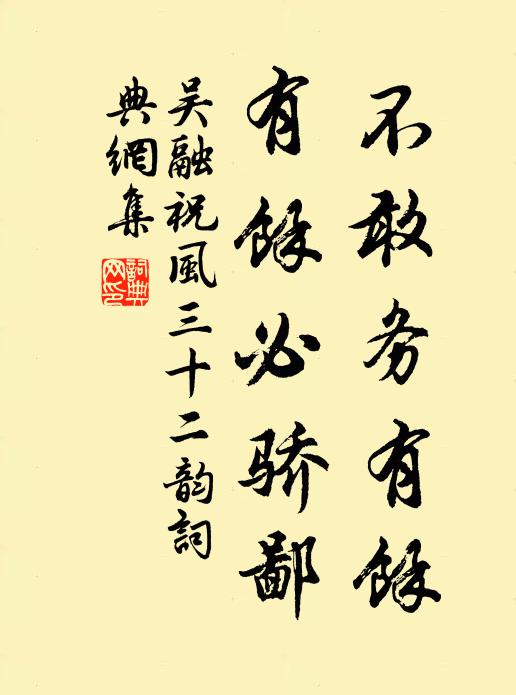 不敢务有餘
有餘必骄鄙
吴融祝風三十二韵詞
典網集
詞典
网印